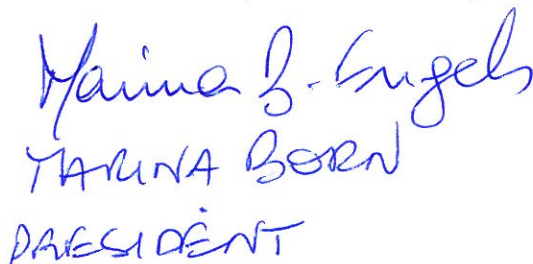 Marina B. Engels
MARINA BORN
PRESIDENT